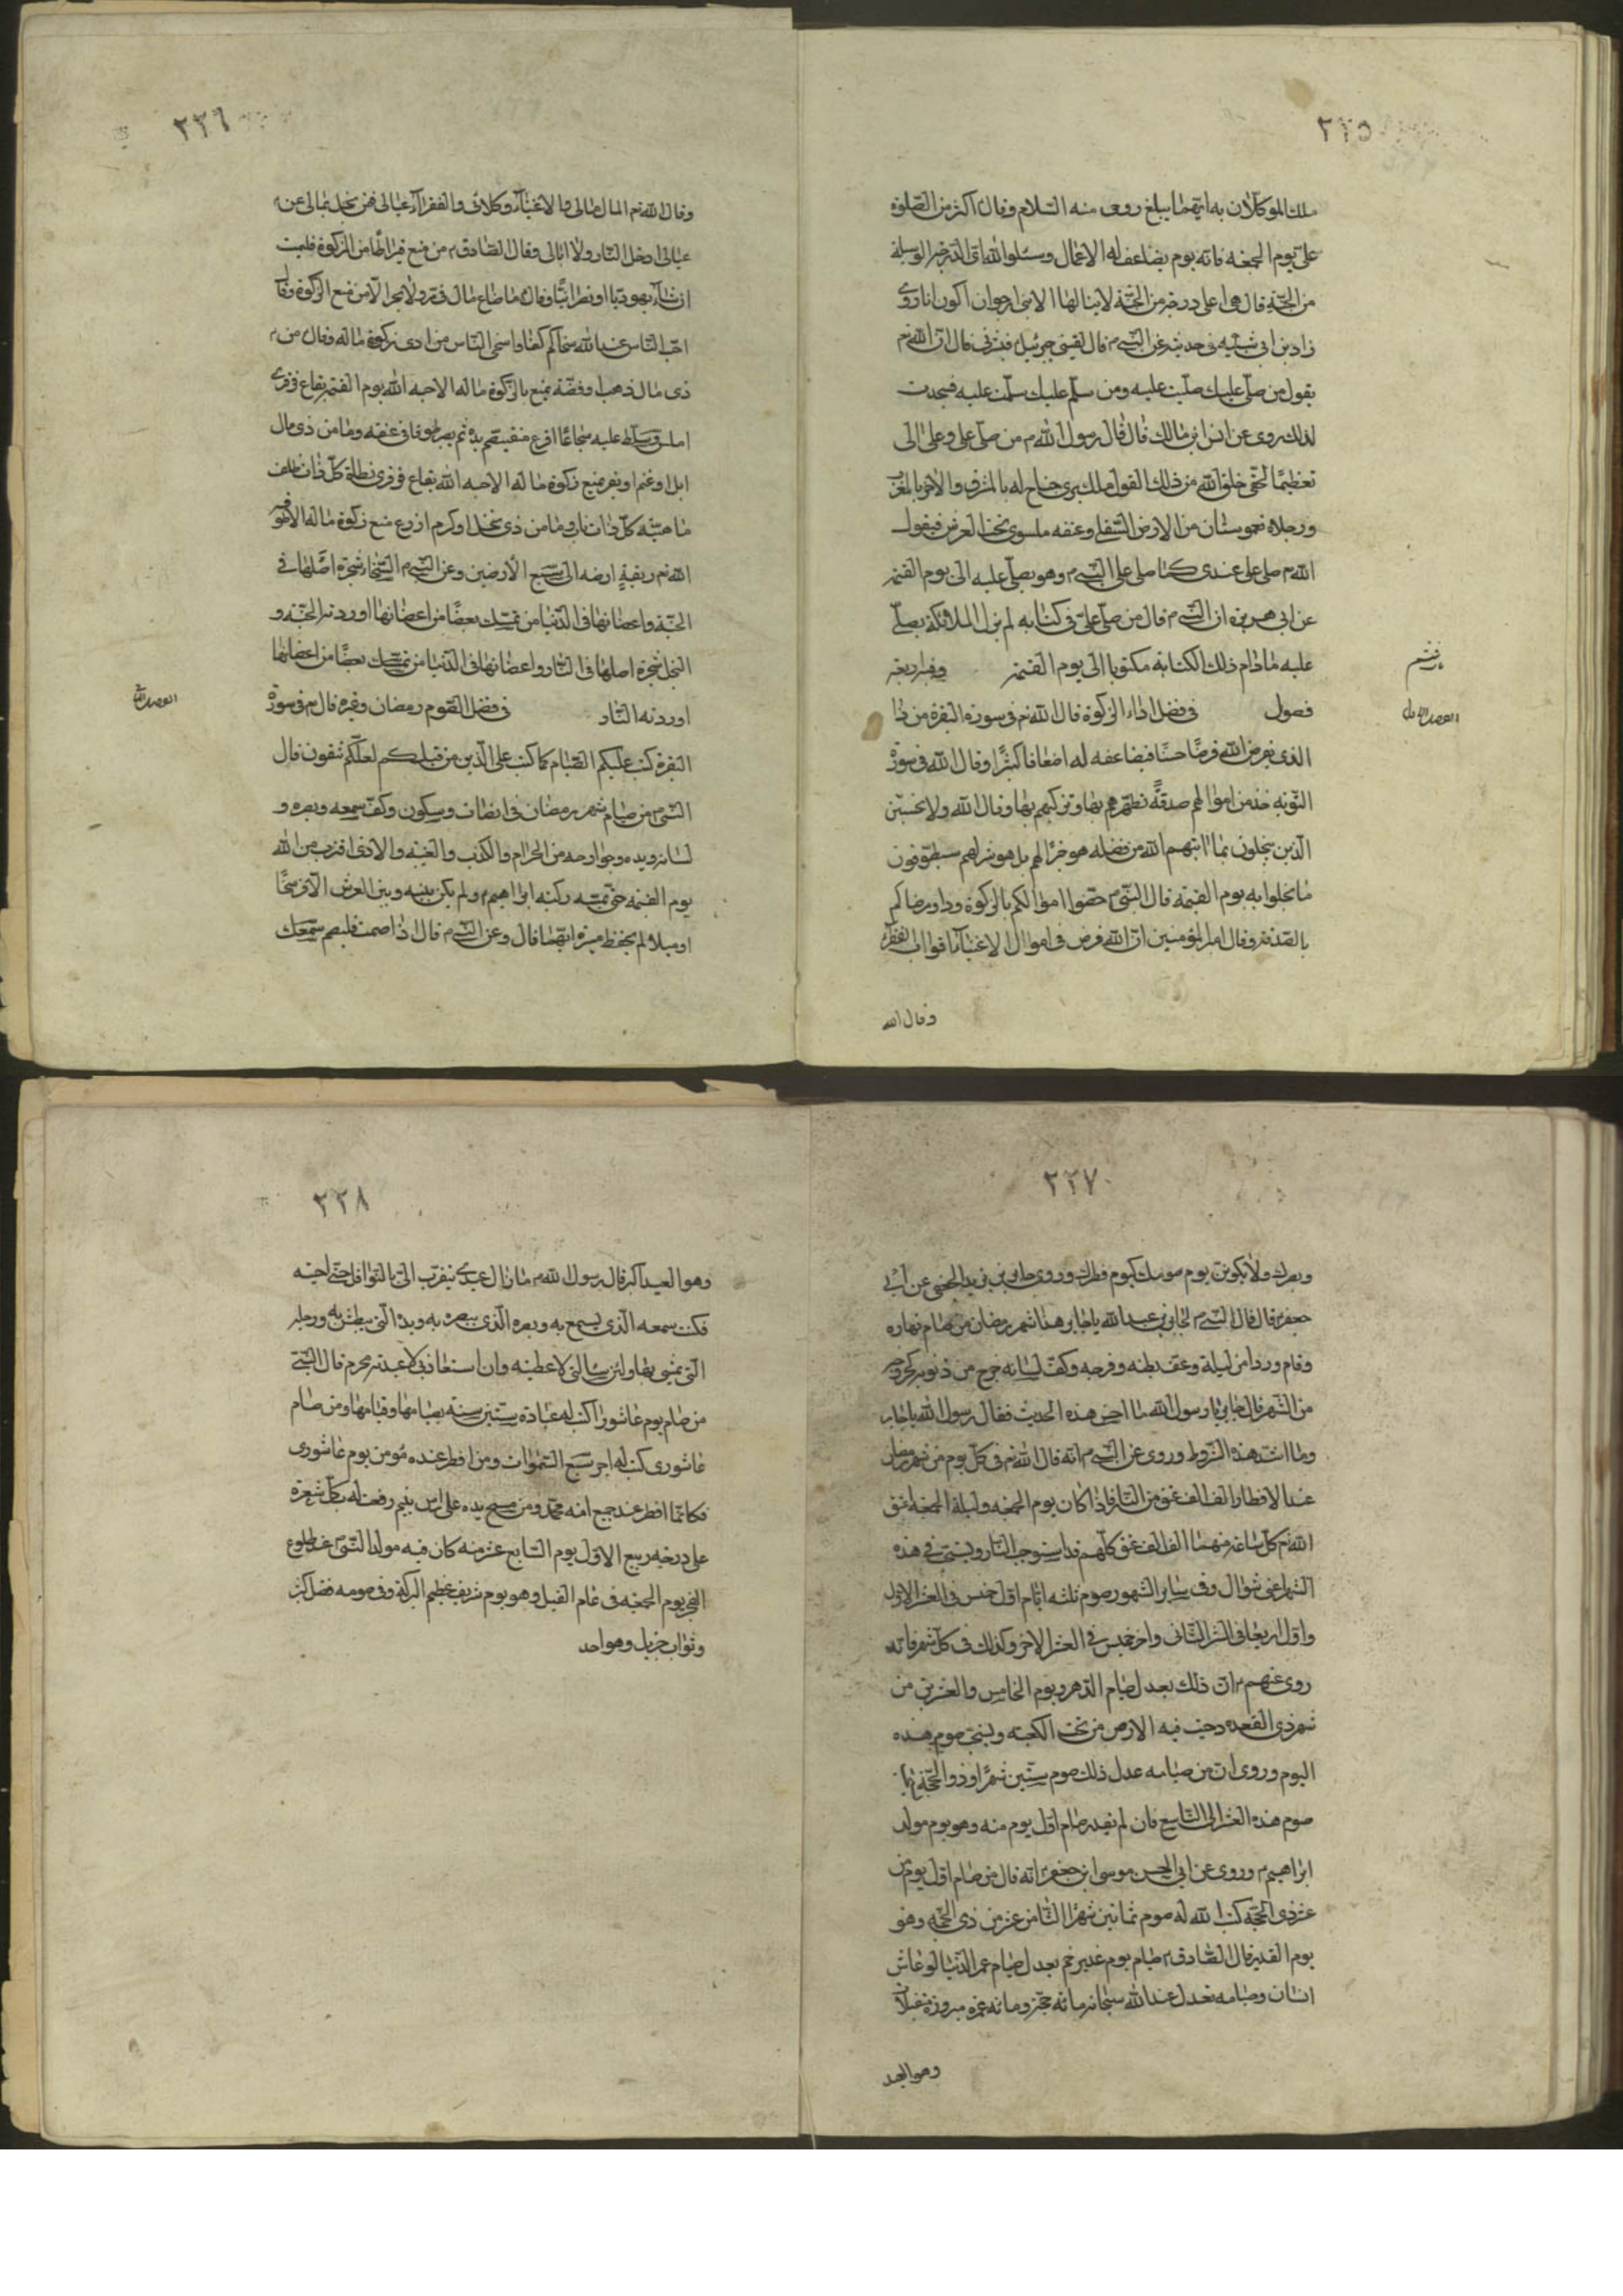 ٢٢٥
ملك الموكلان به ايهما يبلغ روحى منه السلام وقال اكثر من الصلوة
علىّ يوم الجمعه فانه يوم يضاعف له الاعمال وسئلوا الله لى الدرجة الوسيلة
من الجنة قال هى اعلى درجة من الجنة لا ينالها الا نبى ارجو ان اكون انا روى
زاد بن ابى شيبه فى حديثه عن النبى م قال لقينى جبرئيل م فبشرنى قال ان الله تم
يقول من صلّى عليك صلّيت عليه ومن سلّم عليك سلّمت عليه فسجدت
لذلك روى عن انس ابن مالك قال قال رسول الله م من صلّى علىّ وعلى الى
تعظيمًا لحقّى خلق الله من ذلك القول ملك يرى جناح له بالمشرق والاخر بالمغرب
ورجلاه مغموستان من الارض السفلى وعنقه ملتوى تحت العرش فيقول
الله تم صلّ على عبدى كما صلى على النبى م وهو يصلّى عليه الى يوم القيمة
عن ابى هريره ان النبى م قال من صلّى علىّ فى كتابه لم تزل الملائكة يصلّى
عليه مادام ذلك الكتابه مكتوبا الى يوم القيمة وفيه اربعة
فصول فى فضل اداء الزكوة قال الله تم فى سورة البقرة من ذا
الذى يقرض الله قرضًا حسنًا فيضاعفه له اضعافا كثيرًا وقال الله فى سورة
التوبه خذ من اموالهم صدقةً تطهرهم بها وتزكيهم بها وقال الله ولا تحسبن
الذين يبخلون بما اتيهم الله من فضله هو خيرًا لهم بل هو شر لهم سيطوّقون
ما بخلوا به يوم القيمة قال النبى م حصّنوا اموالكم بالزكوة وداو مرضاكم
بالصدقة وقال امير المؤمنين ان الله فرض فى اموال الاغنياء اقوات الفقراء
وقال الله
الفصل الاول
٢٢٦
وقال الله تم المال مالى والاغنياء وكلائى والفقراء عيالى فمن بخل بمالى عن
عيالى ادخل النار ولا ابالى وقال الصادق م من منع قيراطا من الزكوة فليمت
ان شاء يهوديا او نصرانيًا وقال ما ضاع مال فى بر ولا بحر الا من منع الزكوة وقال
احبّ الناس عند الله سخاكم كفّا واسخى الناس من ادى زكوة ماله وقال من
ذى مال ذهب او فضّة يمنع بالزكوة ماله الا حبسه الله يوم القيمة بقاع قرقر
املس وسلّط عليه شجاعًا اقرع ثم يصير طوقا فى عنقه وما من ذى مال
ابل او غنم او بقر يمنع زكوة ماله الا حبسه الله بقاع قرقر تطائه كلّ ذات ظلف
كلّ ذات ناب وما من ذى نخل او كرم او زرع منع زكوة ماله الا
الله تم ربقةِ ارضه الى سبع الارضين وعن النبى م السخاء شجرة اصلها فى
الجنة واغصانها فى الدنيا من تمسّك بعضًا من اغصانها اوردته الجنّة و
البخل شجرة اصلها فى النار واغصانها فى الدنيا من تمسّك بعضًا من اغصانها
اوردته النار فى فضل الصوم رمضان وغيره قال تم فى سورة
البقرة كتب عليكم الصيام كما كتب على الذين من قبلكم لعلّكم تتقون قال
النبى م من صام شهر رمضان فى انصات وسكون وكفّ سمعه وبصره و
لسانه ويده وجوارحه من الحرام والكذب والغيبه والاذى اقترب من الله
يوم القيمة حتى تمسّه ركبه ابراهيم م ولم يكن بينه وبين العرش الا فرسخًا
او ميلا لم يحفظ ميزه ايهما قال وعن النبى م قال اذا صمت فليصم سمعك
الفصل الثانى
٢٢٧
وبصرك ولا يكونن يوم صومك كيوم فطرك وروى جابر بن يزيد الجعفى عن ابى
جعفر م قال قال النبى م لجابر بن عبد الله يا جابر هذا شهر رمضان من صام نهاره
وقام وردا من ليلة وعفّ بطنه وفرجه وكفّ لسانه خرج من ذنوبه كخروجه
من الشهر قال جابر يا رسول الله ما احسن هذه الحديث فقال رسول الله يا جابر
وما اشد هذه الشروط وروى عن النبى م انه قال الله تم فى كلّ يوم من شهر رمضان
عند الافطار الف الف عتق من النار فاذا كان يوم الجمعه وليلة الجمعه اعتق
الله تم كلّ ساعة منهما الف الف عتق كلّهم قد استوجب النار ويستحبّ فى هذه
الشهر اعنى شوّال وفى ساير الشهور صوم ثلثه ايّام اوّل خميس فى العشر الاوّل
واوّل اربعا فى العشر الثانى واخر خميس فى العشر الاخر وكذلك فى كلّ شهر فانه
روى عنهم م ان ذلك يعدل صيام الدهر ويوم الخامس والعشرين من
شهر ذى القعده دحيت فيه الارض من تحت الكعبه ويستحب صوم هذه
اليوم وروى ان من صيامه عدل ذلك صوم ستين شهرًا وذو الحجّة
صوم هذه العشر الى التاسع فان لم يقدر صام اوّل يوم منه وهو يوم مولد
ابراهيم م وروى عن ابى الحسن موسى ابن جعفر م انه قال من صام اوّل يوم من
عشر ذى الحجّه كتب الله له صوم ثمانين شهرًا الثامن عشر من ذى الحجّه وهو
يوم الغدير قال الصادق م صيام يوم غدير خم يعدل صيام عمر الدنيا لو عاش
انسان وصيامه تعدل عند الله سبحانه مائة حجّة ومائة عمرة مبرورة متقبلات
وهو العيد
٢٢٨
وهو العيد اكبر قال رسول الله م ما زال عبدى يتقرّب الىّ بالنوافل حتى احبّه
فكنت سمعه الذى يسمع به وبصره الذى يبصره به ويده التى يبطش به ورجله
التى يمشى بها ولئن سالنى لاعطينه وان استعاذنى لاعيذنه محرم قال النبى
من صام يوم عاشورا كتب له عبادة ستين سنه بصيامها وقيامها ومن صام
عاشورى كتب له اجر سبع السموات ومن افطر عنده مؤمن يوم عاشورى
فكانما افطر عند جميع امّه محمد ومن مسح يده على راس يتيم رفعت له بكلّ شعره
على درجه ربيع الاوّل يوم السابع عشر منه كان فيه مولد النبى م عند طلوع
الفجر يوم الجمعه فى عام الفيل وهو يوم شريف عظيم البركة وفى صومه فضل كثير
وثواب جزيل وهو احد